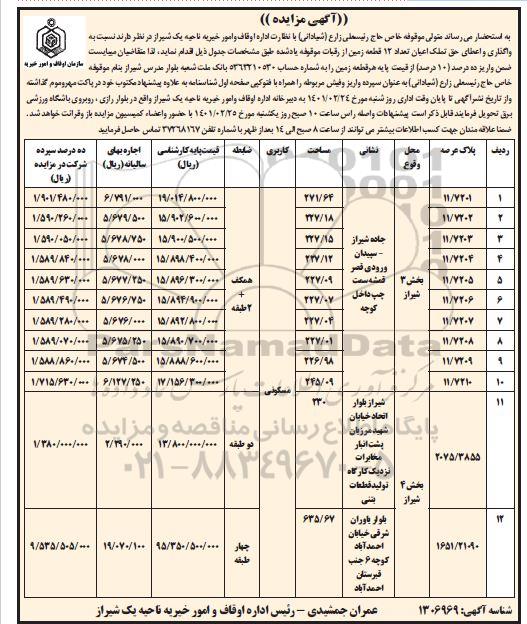 ((آگهی مزایده))
سازمان اوقاف و امور خیریه
به استحضار می رساند متولی موقوفه خاص حاج رئیسعلی زارع (شبادانی) با نظارت اداره اوقاف وامور خیریه ناحیه یک شیراز در نظر دارند نسبت به
واگذاری و اعطای حق تملک اعیان تعداد ۱۲ قطعه زمین از رقبات موقوفه یادشده طبق مشخصات جدول ذیل اقدام نماید، لذا متقاضیان میبایست
ضمن واریز ده درصد (۱۰ درصد) از قیمت پایه هرقطعه زمین را به شماره حساب ۵۳۶۳۲۱۰۵۳۰ بانک ملت شعبه بلوار مدرس شیراز بنام موقوفه
خاص حاج رئیسعلی زارع (شبادانی) به عنوان سپرده واریز وفیش مربوطه را همراه با فتوکپی صفحه اول شناسنامه به علاوه پیشنهاد مکتوب خود در پاکت مهروموم گذاشته
و از تاریخ نشر آگهی تا پایان وقت اداری روز شنبه مورخ ۱۴۰۱/۰۲/۲۴ به دبیرخانه اداره اوقاف و امور خیریه ناحیه یک شیراز واقع در بلوار رازی ، روبروی باشگاه ورزشی
برق تحویل فرمایند قابل ذکر است پیشنهادات واصله راس ساعت ۱۰ صبح روز یکشنبه مورخ ۱۴۰۱/۰۲/۲۵ با حضور واعضاء کمیسیون مزایده باز وقرائت خواهد شد.
ضمنا علاقه مندان جهت کسب اطلاعات بیشتر می توانند از ساعت ۸ صبح الی ۱۴ بعداز ظهر با شماره تلفن ۳۷۲۶۸۱۶۷ تماس حاصل فرمایید
ردیف پلاک عرصه محل وقوع نشانی مساحت کاربری ضابطه قیمت پایه کارشناسی (ریال) اجاره بهای سالیانه (ریال) ده درصد سپرده شرکت در مزایده (ریال)
۱ ۱۱/۷۲۰۱ ۲۷۱/۶۴ ۱۹/۰۱۴/۸۰۰/۰۰۰ ۶/۷۹۱/۰۰۰ ۱/۹۰۱/۴۸۰/۰۰۰
۲ ۱۱/۷۲۰۲ ۲۲۷/۱۸ ۱۵/۹۰۲/۶۰۰/۰۰۰ ۵/۶۷۹/۵۰۰ ۱/۵۹۰/۲۶۰/۰۰۰
۳ ۱۱/۷۲۰۳ ۲۲۷/۱۵ ۱۵/۹۰۰/۵۰۰/۰۰۰ ۵/۶۷۸/۷۵۰ ۱/۵۹۰/۰۵۰/۰۰۰
۴ ۱۱/۷۲۰۴ ۲۲۷/۱۲ ۱۵/۸۹۸/۴۰۰/۰۰۰ ۵/۶۷۸/۰۰۰ ۱/۵۸۹/۸۴۰/۰۰۰
۵ ۱۱/۷۲۰۵ ۲۲۷/۰۹ ۱۵/۸۹۶/۳۰۰/۰۰۰ ۵/۶۷۷/۲۵۰ ۱/۵۸۹/۶۳۰/۰۰۰
۶ ۱۱/۷۲۰۶ ۲۲۷/۰۷ ۱۵/۸۹۴/۹۰۰/۰۰۰ ۵/۶۷۶/۷۵۰ ۱/۵۸۹/۴۹۰/۰۰۰
۷ ۱۱/۷۲۰۷ ۲۲۷/۰۴ ۱۵/۸۹۲/۸۰۰/۰۰۰ ۵/۶۷۶/۰۰۰ ۱/۵۸۹/۲۸۰/۰۰۰
۸ ۱۱/۷۲۰۸ ۲۲۷/۰۱ ۱۵/۸۹۰/۷۰۰/۰۰۰ ۵/۶۷۵/۲۵۰ ۱/۵۸۹/۰۷۰/۰۰۰
۹ ۱۱/۷۲۰۹ ۲۲۶/۹۸ ۱۵/۸۸۸/۶۰۰/۰۰۰ ۵/۶۷۴/۵۰۰ ۱/۵۸۸/۸۶۰/۰۰۰
۱۰ ۱۱/۷۲۱۰ ۲۴۵/۰۹ ۱۷/۱۵۶/۳۰۰/۰۰۰ ۶/۱۲۷/۲۵۰ ۱/۷۱۵/۶۳۰/۰۰۰
بخش ۳
شیراز
جاده شیراز
- سپیدان
ورودی قصر
قمشه سمت
چپ داخل
کوچه
همکف
+
۲طبقه
مسکونی
۱۱ ۲۰۷۵/۳۸۵۵ ۲۳۰ دو طبقه ۱۳/۸۰۰/۰۰۰/۰۰۰ ۲/۲۹۰/۰۰۰ ۱/۳۸۰/۰۰۰/۰۰۰
شیراز بلوار
اتحاد خیابان
شهید مرزبان
پشت انبار
مخابرات
نزدیک کارگاه
تولید قطعات
بتنی
بخش ۴
شیراز
۱۲ ۱۶۵۱/۲۱۰۹۰ ۶۳۵/۶۷ چهار طبقه ۹۵/۳۵۰/۵۰۰/۰۰۰ ۱۹/۰۷۰/۱۰۰ ۹/۵۳۵/۵۰۵/۰۰۰
بلوار یاوران
شرقی خیابان
احمدآباد
کوچه ۶ جنب
قبرستان
احمدآباد
ParsNamadData
پایگاه اطلاع رسانی مناقصه و مزایده
۰۲۱-۸۸۳۴۹۶۷۰-۵
شناسه آگهی: ۱۳۰۶۹۶۹
عمران جمشیدی - رئیس اداره اوقاف و امور خیریه ناحیه یک شیراز